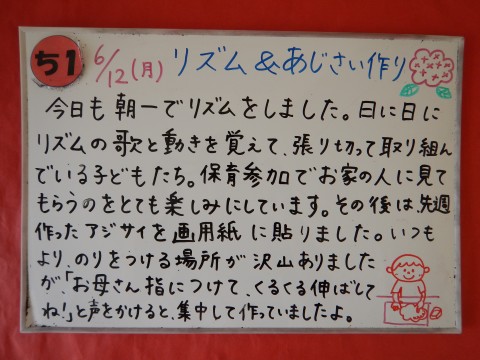 ち1 6/12(月) リズム&あじさい作り
今日も朝一でリズムをしました。日に日に
リズムの歌と動きを覚えて、張り切って取り組ん
でいる子どもたち。保育参加でお家の人に見て
もらうのをとても楽しみにしています。その後は、先週
作ったアジサイを画用紙に貼りました。いつも
より、のりをつける場所が沢山ありました
が、「お母さん指につけて、くるくる伸ばして
ね!」と声をかけると、集中して作っていましたよ。